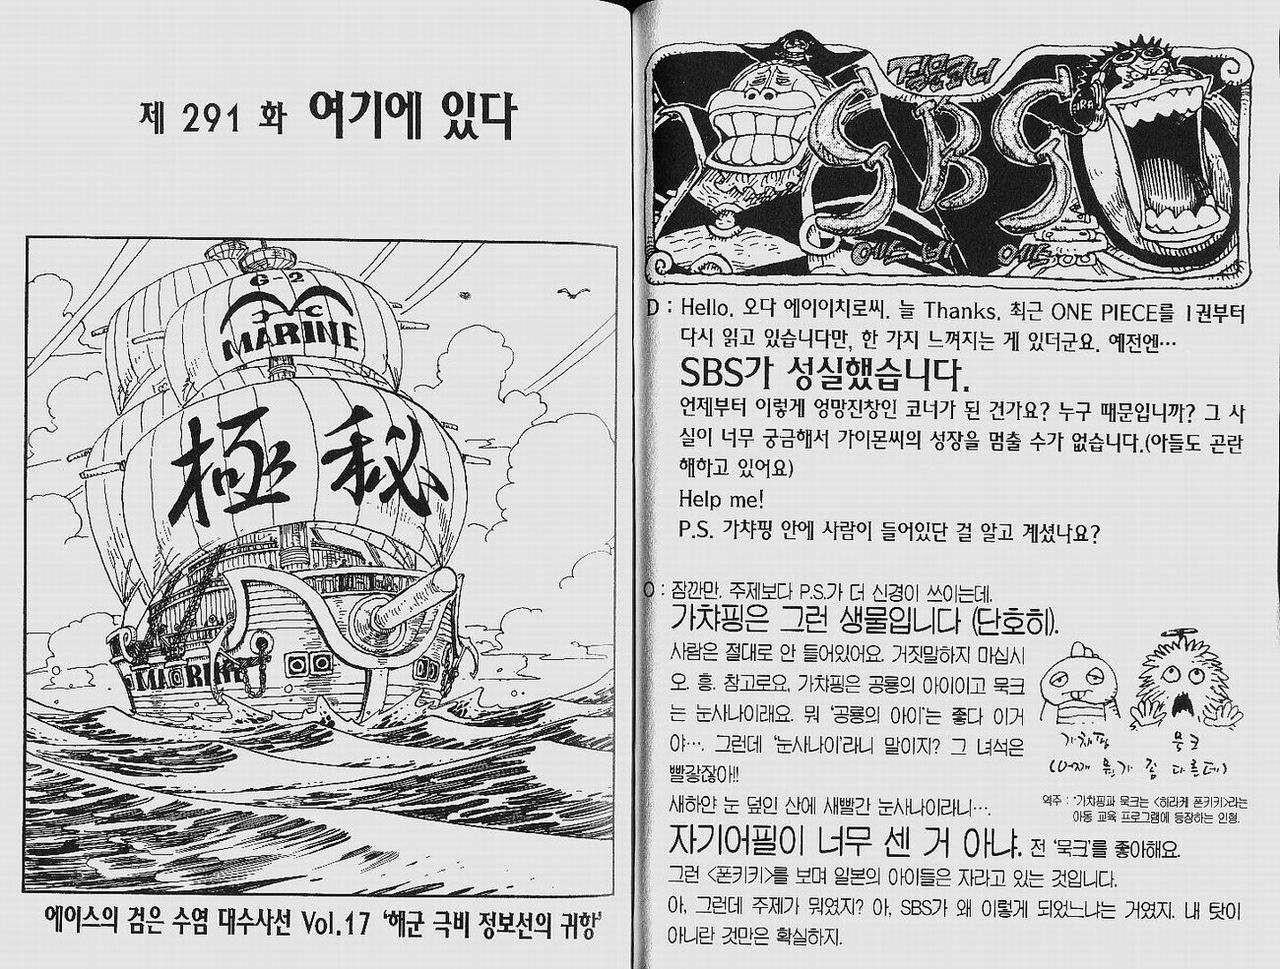 제 291 화 여기에 있다
G-2
MARINE
極秘
MARINE
에이스의 검은 수염 대수사선 Vol.17 '해군 극비 정보선의 귀항'
SBS
D : Hello. 오다 에이이치로씨. 늘 Thanks. 최근 ONE PIECE를 1권부터
다시 읽고 있습니다만, 한 가지 느껴지는 게 있더군요. 예전엔…
SBS가 성실했습니다.
언제부터 이렇게 엉망진창인 코너가 된 건가요? 누구 때문입니까? 그 사
실이 너무 궁금해서 가이몬씨의 성장을 멈출 수가 없습니다.(아들도 곤란
해하고 있어요)
Help me!
P.S. 가챠핑 안에 사람이 들어있단 걸 알고 계셨나요?
O : 잠깐만. 주제보다 P.S.가 더 신경이 쓰이는데.
가챠핑은 그런 생물입니다 (단호히).
사람은 절대로 안 들어있어요. 거짓말하지 마십시
오. 흥. 참고로요, 가챠핑은 공룡의 아이이고 묵크
는 눈사나이래요. 뭐 '공룡의 아이'는 좋다 이거
야…. 그런데 '눈사나이'라니 말이지? 그 녀석은
빨갛잖아!!
새하얀 눈 덮인 산에 새빨간 눈사나이라니….
자기어필이 너무 센 거 아냐. 전 '묵크'를 좋아해요.
그런 <폰키키>를 보며 일본의 아이들은 자라고 있는 것입니다.
아, 그런데 주제가 뭐였지? 아, SBS가 왜 이렇게 되었느냐는 거였지. 내 탓이
아니란 것만은 확실하지.
가챠핑
묵크
(어째 뭔가 좀 다른데)
역주 : '가챠핑과 묵크는 <히라케 폰키키>라는
아동 교육 프로그램에 등장하는 인형.